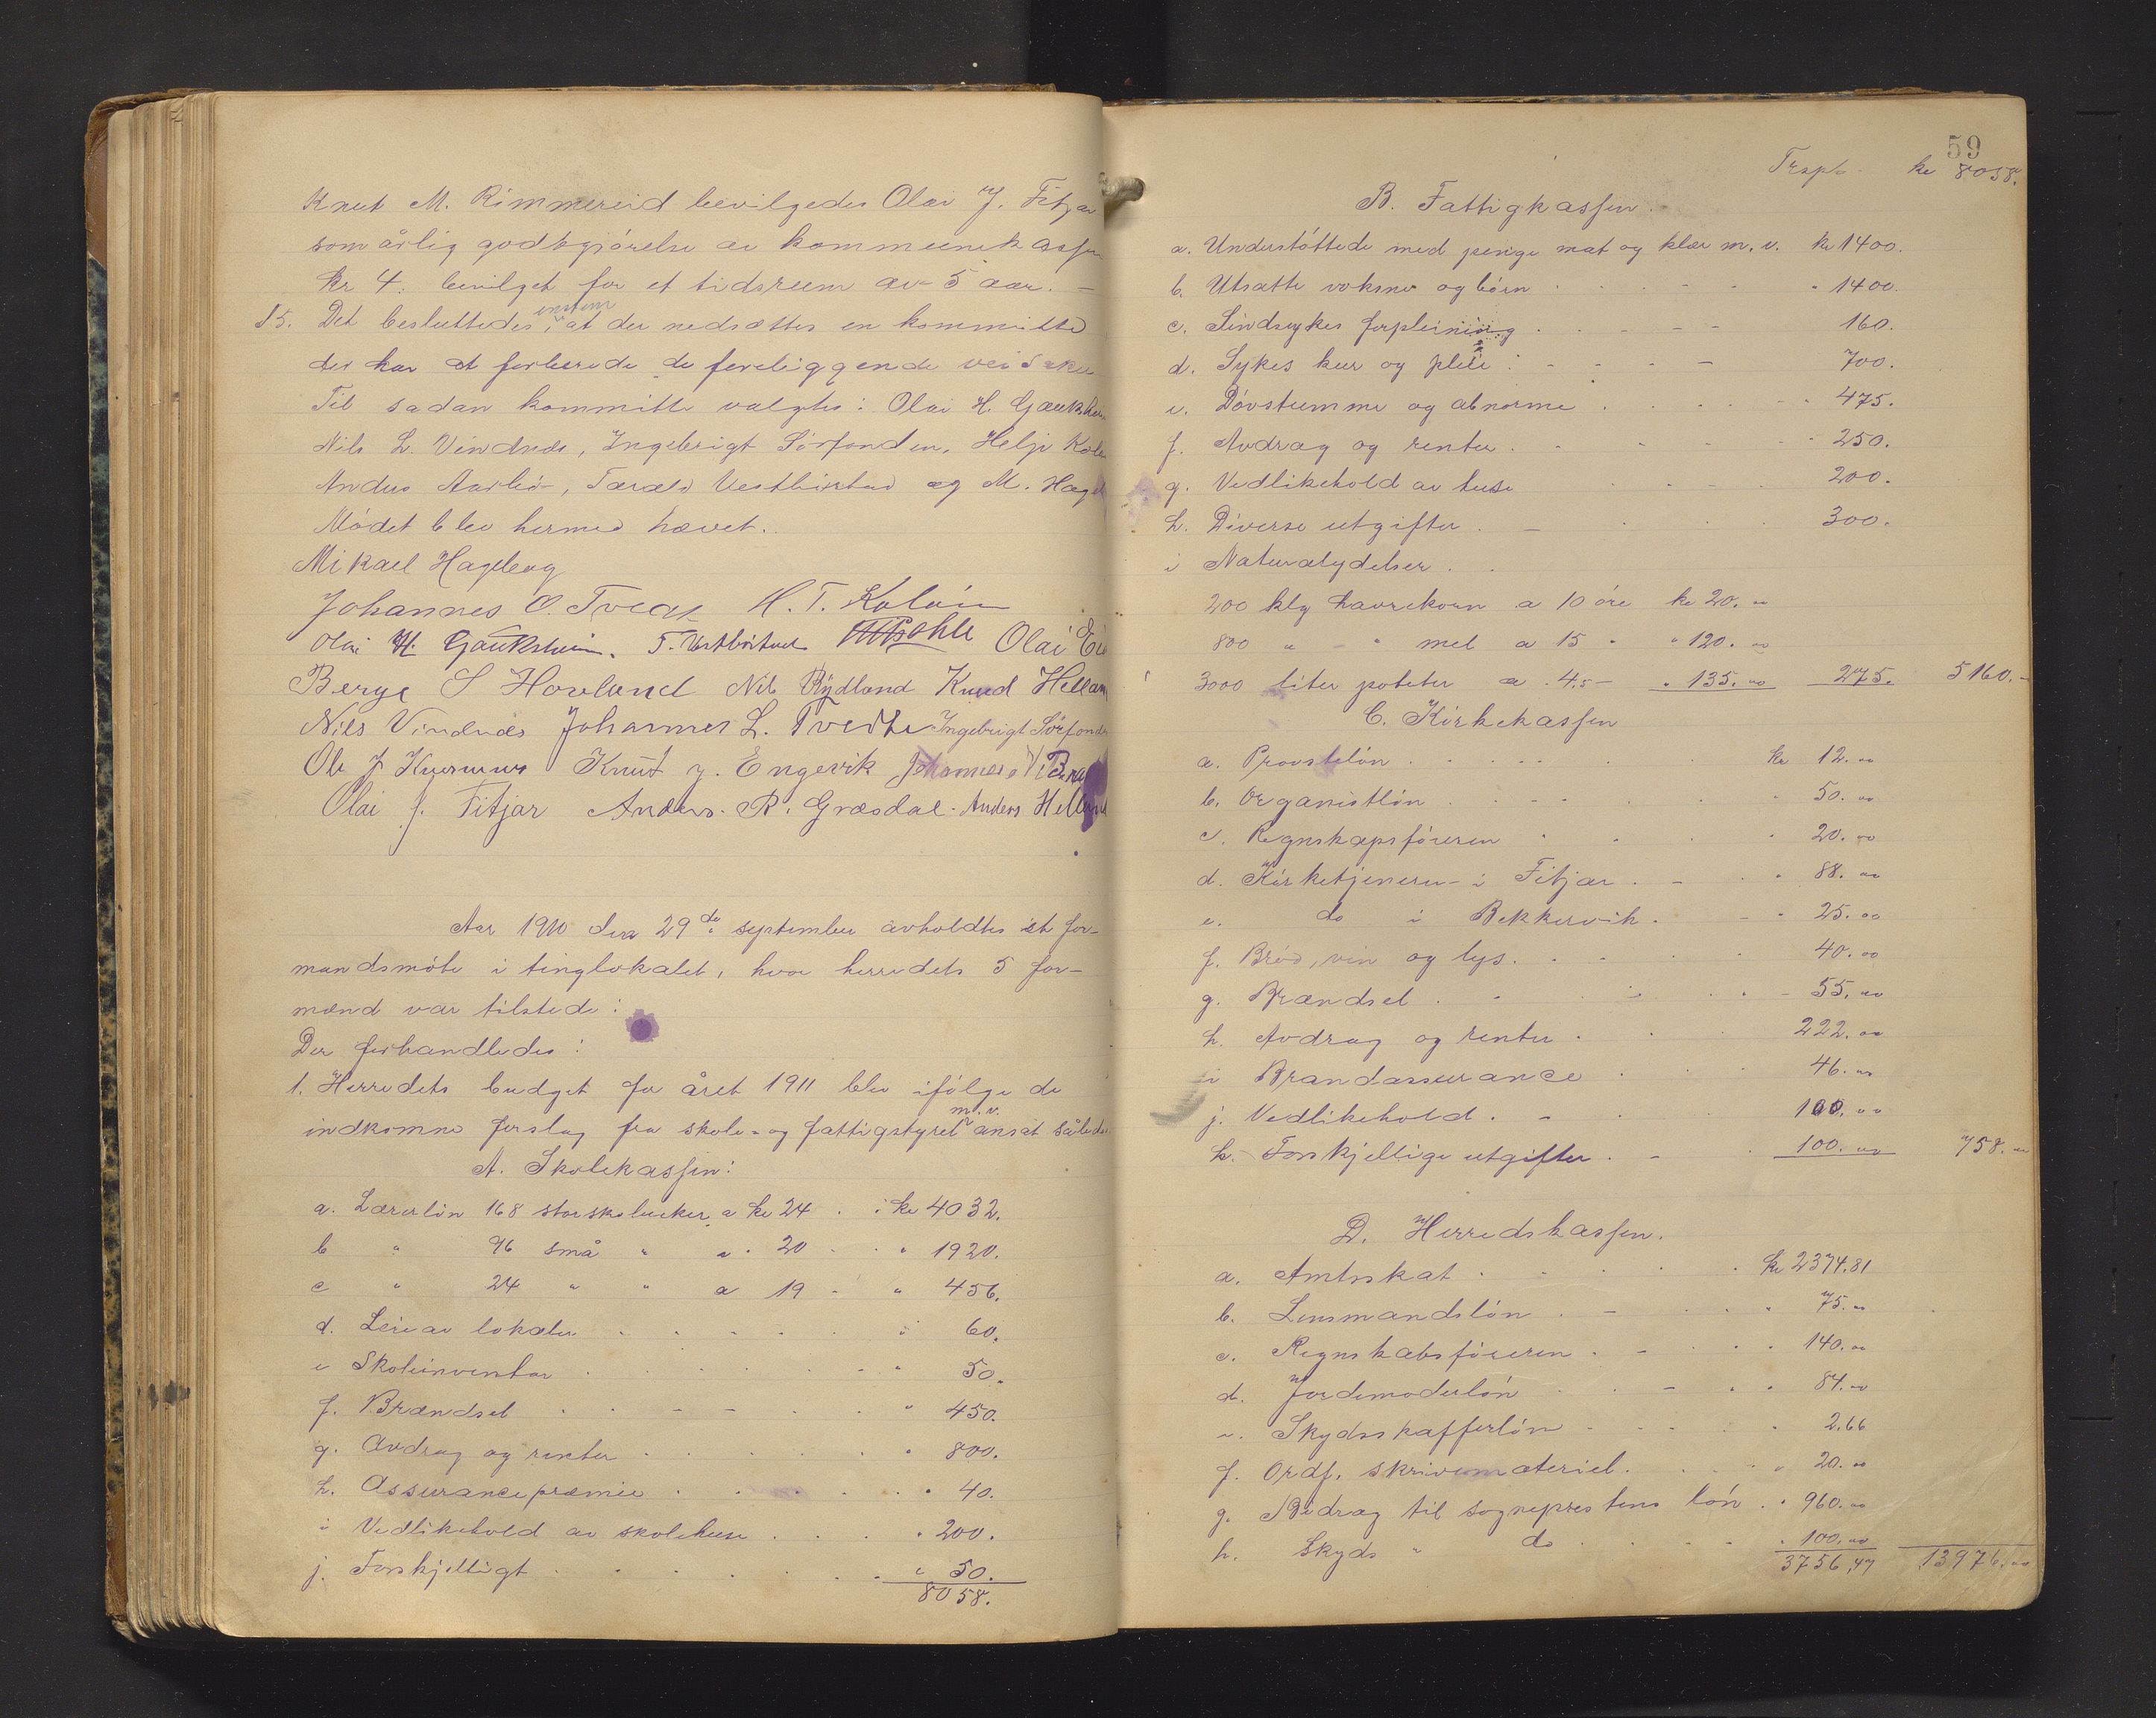 Knut M. Rimmereid bevilgedes Olai J. Fitjar
som årlig godtgjørelse av kommunekassen
kr 4. bevilget for et tidsrum av 5 aar. –
15. Det besluttedes, at der nedsættes en kommitte
der har at forberede de foreliggende veisaker
Til sadan kommitte valgtes: Olai H. Gaukshei
Nils L. Vindnæs, Ingebrigt Sörfonden, Helje
Anders Aarbö, Tærald Vestböstad og M. Hage
Mödet blev hermed hævet.
Mikael Hageberg
Johannes O. Tveda H. T. Koløin
Olai H. Gaukshein. T. Vestböstad Olai
Berge S Hovland Nils Rydland Knud Helland
Nils Vindnæs Johannes L. Tvedte Ingebrigt Sörfonden
Ole J Knut J. Engevik Johannes
Olai J. Fitjar Anders R. Græsdal. Anders Helland
Aar 1910 den 29de september avholdtes et for-
mandsmöte i tinglokalet, hvor herredets 5 for-
mænd var tilstede:
Der forhandledes:
1. Herredets budget for året 1911 blev ifölge de
indkomne forslag fra skole- og fattigstyret m.v. ansat således
A. Skolekassen:
a. Lærerlön 168 storskoleuker a kr 24 . " kr 4032.
b " 96 små " a " 20 . . " 1920.
c " 24 " " a 19 - " 456.
d. Leie av lokaler . . . . . " 60.
e Skoleinventar . . . . . " 50.
f. Brændsel . . - - . . " 450.
g. Avdrag og renter . . . . . " 800.
h. Assurancepræmie . . . . . " 40.
i Vedlikehold av skolehuse . . . . " 200.
j. Forskjelligt . . . . . . " 50.
8058.
59
Trspt. kr 8058.
B. Fattigkassen.
a. Understöttede med penge mat og klær m. v. kr 1400.
b. Utsatte voksne og börn . . . . - " 1400.
c. Sindsykes forpleining . . . - - 160.
d. Sykes kur og pleie . - . - - 700.
e. Dövstumme og abnorme . . . . " 475.
f. Avdrag og renter . . . . . " 250.
g. Vedlikehold av huse . . - . 200.
h. Diverse utgifter . - . . . 300.
i Naturalydelser . .
200 klg havrekorn a 10 öre kr 20. 00
800 " - " mel a 15 " " 120. 00
3000 liter poteter a 4.5 - " 135. 00 275. 5160. -
C. Kirkekassen
a. Provstelön . . . . . . kr 12. 00
b. Organistlön . . . . . . " 50. 00
c. Regnskapsföreren . . . . " 20. 00
d. Kirketjeneren i Fitjar . - . " 88. 00
e. do i Bekkervik . - " 25. 00
f. Bröd, vin og lys. . . . . . 40. 00
g. Brændsel . . . . . . - 55. 00
h. Avdrag og renter . . . 222. 00
i Brandassurance . . . 46. 00
j. Vedlikehold . - . . 100. 00
k. Forskjellige utgifter . - . 100. 00 758. 00
D. Herredskassen.
a. Amtsskat . . . . . . kr 2374.81
b. Lensmandslön . - . . " 75. 00
c. Regnskabsföreren . - . . . 140. 00
d. Jordemoderlön . . - . " 84. 00
e. Skydsskafferlön . . . . " 2.66
f. Ordf. skrivemateriel. . . . " 20. 00
g. Bidrag til sogneprestens lön . " 960. 00
h. Skyds " do . . . . - " 100. 00
3756,47 13976. 00